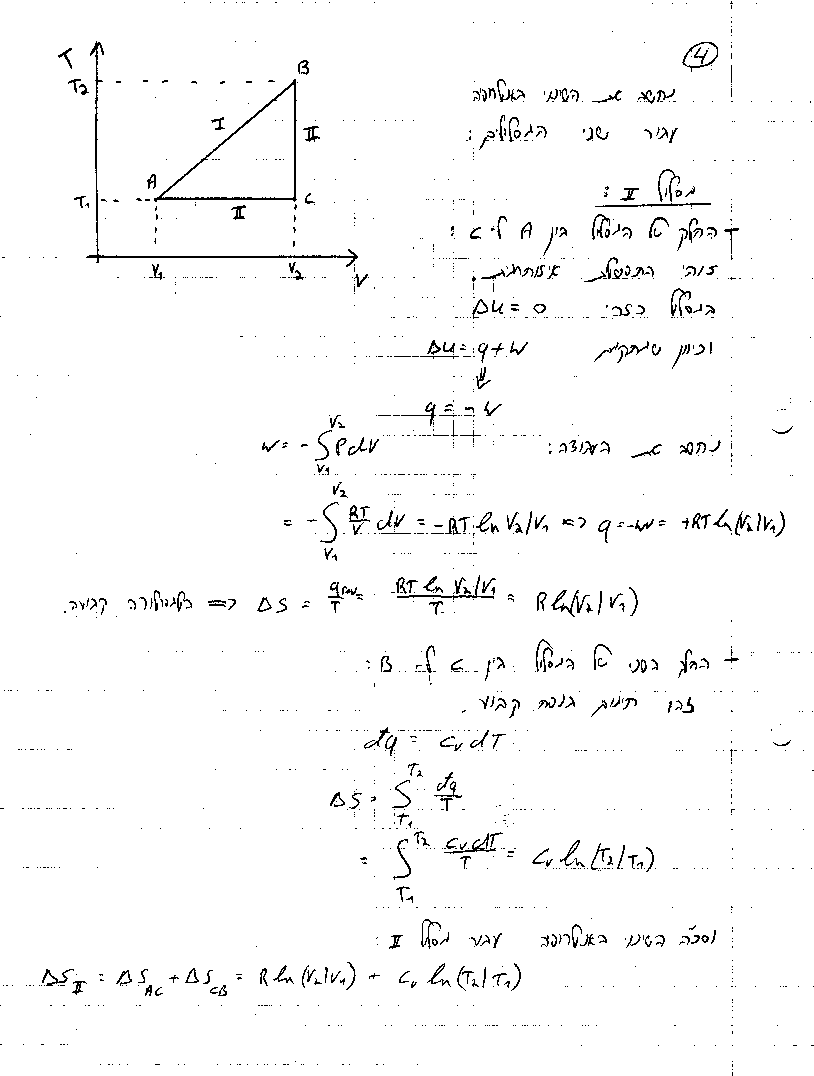 4
T
T₂
B
I
II
A
T₁
C
II
V₁
V₂
V
נחשב את השינוי באנטרופיה
עבור שני המסלולים:
מסלול II:
+ החלק של המסלול בין A ל-C:
זוהי התפשטות איזותרמית.
במסלול כזה: ΔU = 0
וכיוון שמתקיים ΔU = q + W
⇓
q = -W
נחשב את העבודה: W = -∫_{V₁}^{V₂} P dV
= -∫_{V₁}^{V₂} RT/V dV = -RT ln V₂/V₁ => q = -W = +RT ln(V₂/V₁)
בטמפרטורה קבועה. => ΔS = q_rev/T = (RT ln V₂/V₁)/T = R ln(V₂/V₁)
+ החלק השני של המסלול בין C ל-B:
זהו חימום בנפח קבוע.
đq = C_v dT
ΔS = ∫_{T₁}^{T₂} đq/T
= ∫_{T₁}^{T₂} C_v dT/T = C_v ln(T₂/T₁)
וסה"כ השינוי באנטרופיה עבור מסלול II:
ΔS_II = ΔS_AC + ΔS_CB = R ln(V₂/V₁) + C_v ln(T₂/T₁)